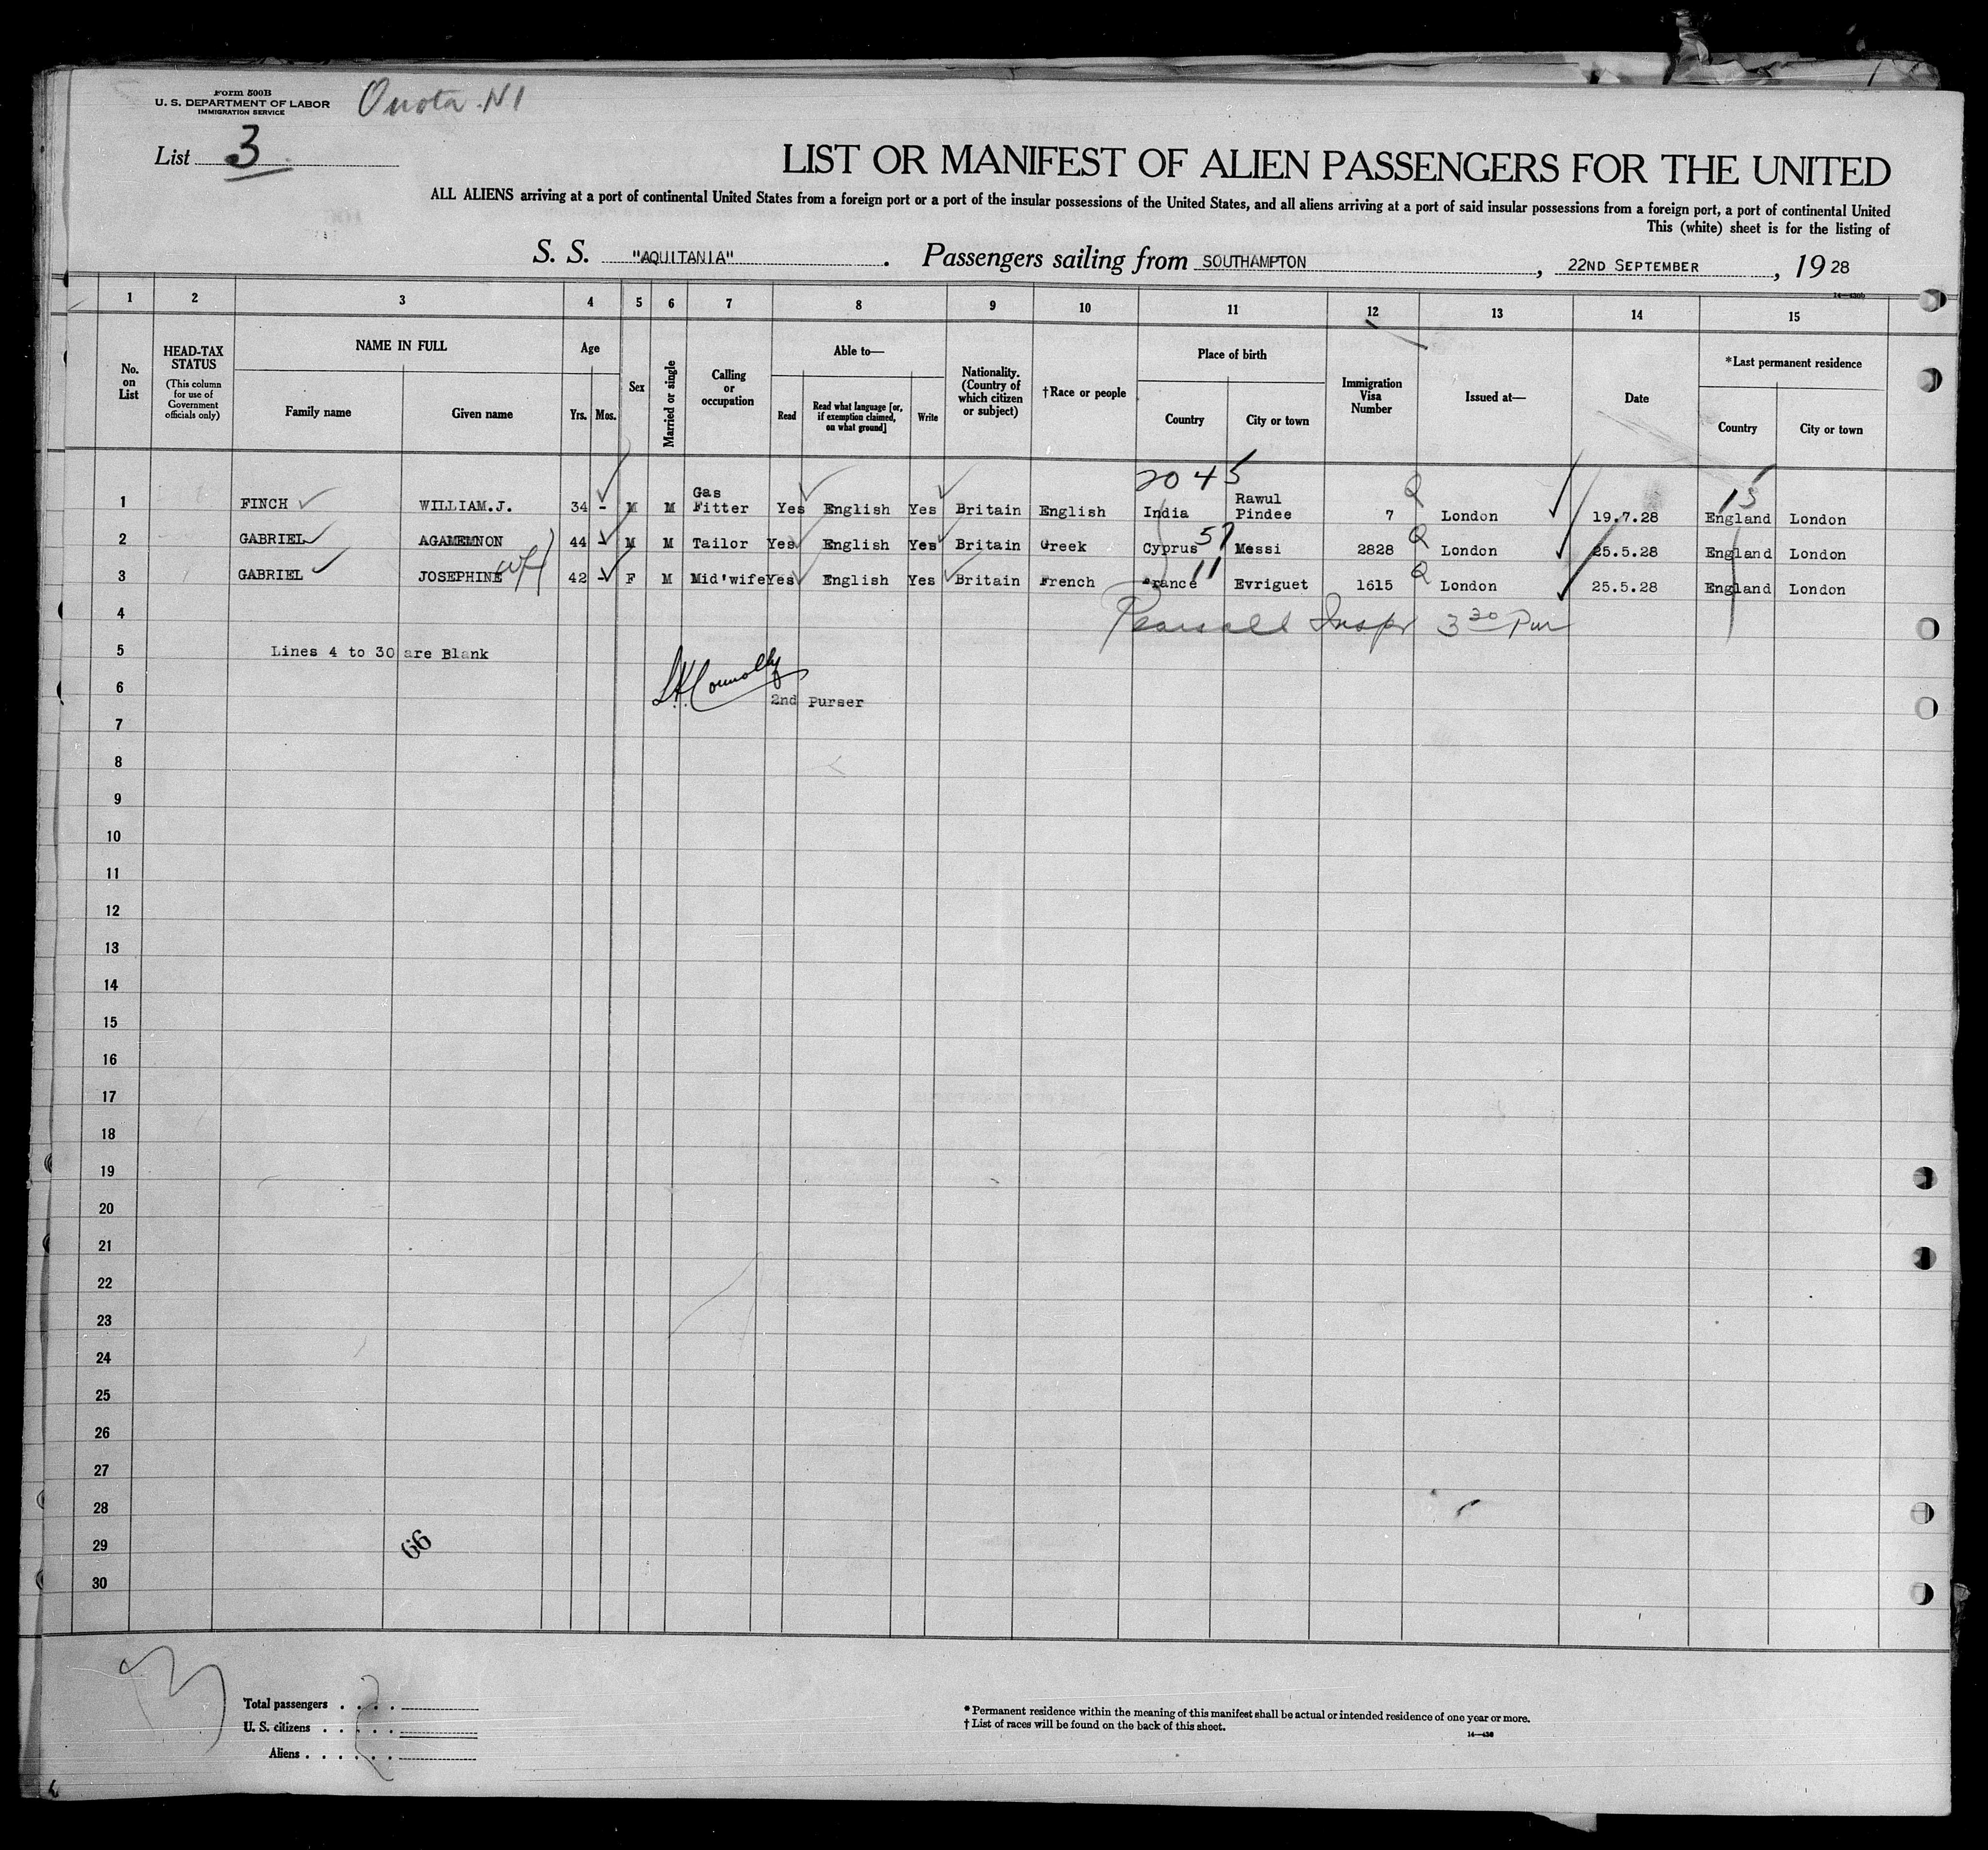 Form 500B
U. S. DEPARTMENT OF LABOR
IMMIGRATION SERVICE
List 3
LIST OR MANIFEST OF ALIEN PASSENGERS FOR THE UNITED
ALL ALIENS arriving at a port of continental United States from a foreign port or a port of the insular possessions of the United States, and all aliens arriving at a port of said insular possessions from a foreign port, a port of continental United
This (white) sheet is for the listing of
S. S. "AQUITANIA". Passengers sailing from SOUTHAMPTON, 22ND SEPTEMBER, 1928
1 2 3 4 5 6 7 8 9 10 11 12 13 14 15
No. on List
HEAD-TAX STATUS (This column for use of Government officials only)
NAME IN FULL
Family name Given name
Age
Yrs. Mos.
Sex
Married or single
Calling or occupation
Able to—
Read Read what language [or, if exemption claimed, on what ground] Write
Nationality. (Country of which citizen or subject)
†Race or people
Place of birth
Country City or town
Immigration Visa Number
Issued at—
Date
*Last permanent residence
Country City or town
2045 15
1 FINCH WILLIAM.J. 34 - M M Gas Fitter Yes English Yes Britain English India Rawul Pindee 7 Q London 19.7.28 England London
2 GABRIEL AGAMEMNON 44 - M M Tailor Yes English Yes Britain Greek Cyprus 57 Messi 2828 Q London 25.5.28 England London
3 GABRIEL JOSEPHINE 42 - F M Mid'wife Yes English Yes Britain French France 11 Evriguet 1615 Q London 25.5.28 England London
4 Insp 3 30
5 Lines 4 to 30 are Blank
Connolly
6 2nd Purser
7
8
9
10
11
12
13
14
15
16
17
18
19
20
21
22
23
24
25
26
27
28
29
66
30
3
Total passengers
U. S. citizens
Aliens
* Permanent residence within the meaning of this manifest shall be actual or intended residence of one year or more.
† List of races will be found on the back of this sheet.
14—430